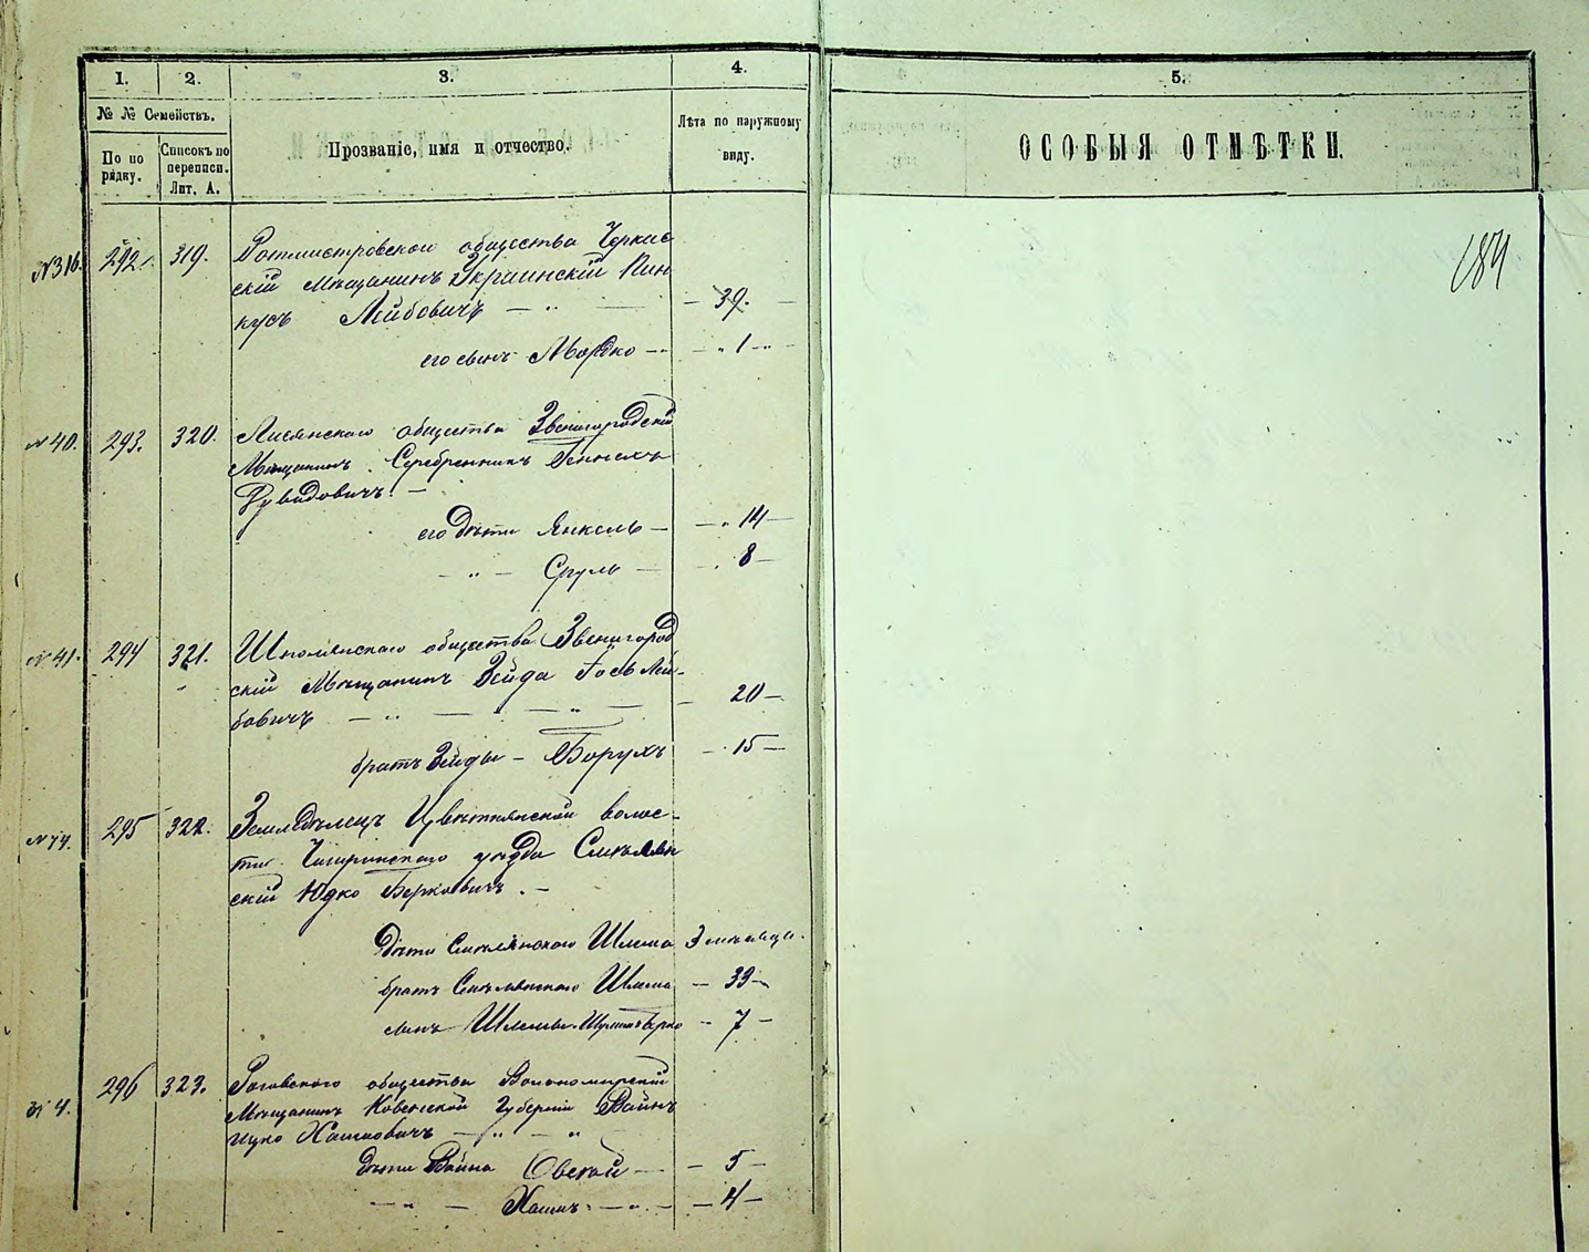 1. 2. 3. 4. 5.
№ № Семействъ.
По по рядку.
Списокъ по переписи. Лит. А.
Прозваніе, имя и отчество.
Лѣта по наружному виду.
ОСОБЫЯ ОТМѢТКИ.
184
№316. 292. 319. Ротмистровскаго общества Черкас
скій Мѣщанинъ Украинскій Пин
кусъ Лейбовичъ — 39. —
его сынъ Мордко — 1 —
№40. 293. 320. Лисянскаго общества Звенигородскій
Мѣщанинъ Серебренникъ
Рувидовичъ. —
его дѣти Янкель — 14 —
— " — Сруль — 8 —
№41. 294 321. Шполянскаго общества Звенигород
скій Мѣщанинъ Зейда Лей-
бовичъ — " — " — 20 —
братъ Зейды — Борухъ — 15 —
295 322. Земледѣлецъ Цвѣтнянской волос-
ти Чигиринскаго уѣзда Смѣлян
скій Юдко Берковичъ. —
дѣти Смѣлянскаго Шлема 3 мѣсяца.
братъ Смѣлянскаго Шлема — 33 —
сынъ Шлемы Берко — 7 —
№ 4. 296 323. общества
Мѣщанинъ Ковенской Губерніи Вайнъ
Ицко Хаимовичъ — " — "
дѣти Вайна Овсей — 5 —
— " — Хаимъ — " — 4 —